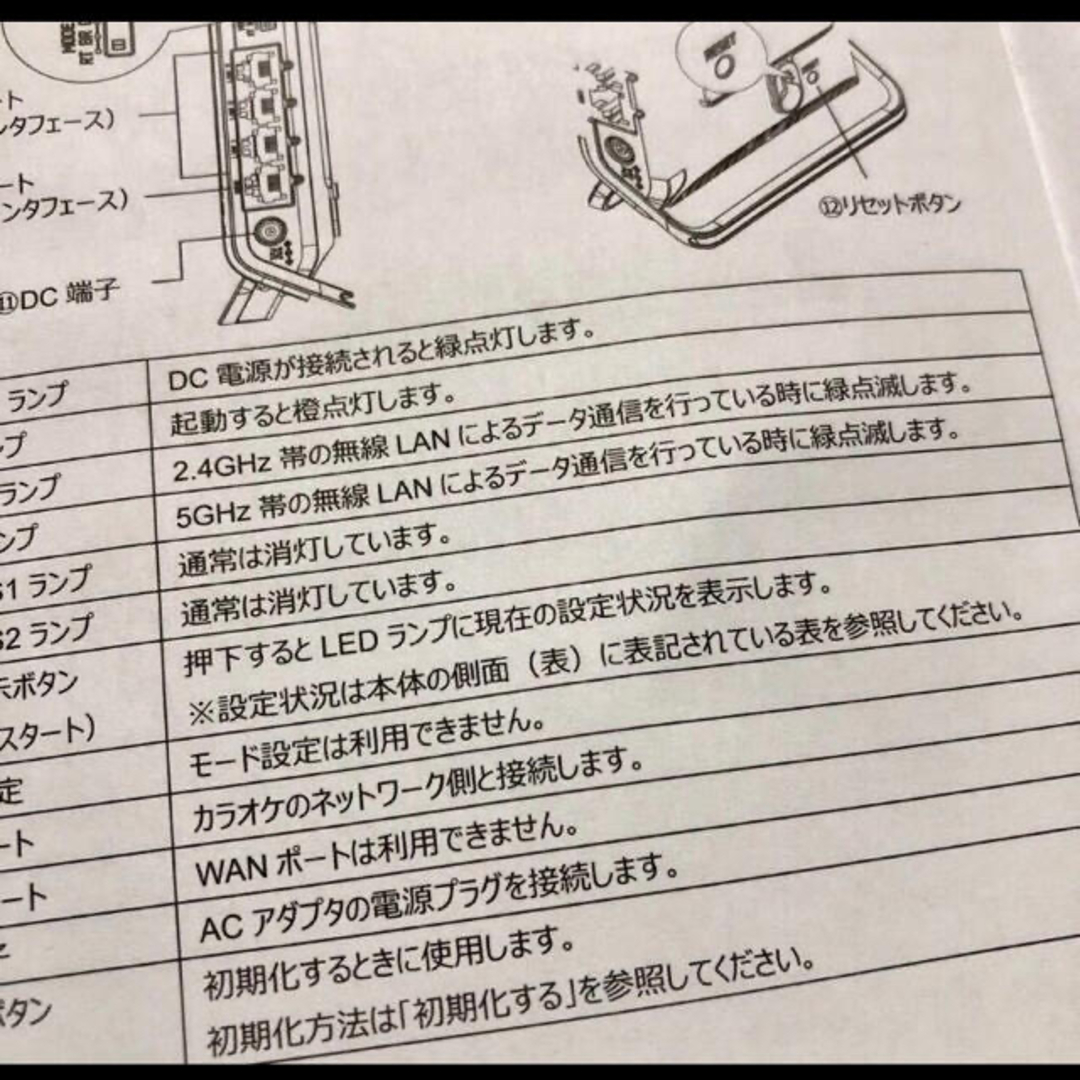 MODE
RT BR
RESET
ート
ンタフェース）
ート
ンタフェース）
⑪DC 端子
⑫リセットボタン
ランプ
DC 電源が接続されると緑点灯します。
ンプ
起動すると橙点灯します。
ランプ
2.4GHz 帯の無線 LAN によるデータ通信を行っている時に緑点滅します。
ンプ
5GHz 帯の無線 LAN によるデータ通信を行っている時に緑点滅します。
S1 ランプ
通常は消灯しています。
S2 ランプ
通常は消灯しています。
示ボタン
押下すると LED ランプに現在の設定状況を表示します。
スタート）
※設定状況は本体の側面（表）に表記されている表を参照してください。
定
モード設定は利用できません。
ート
カラオケのネットワーク側と接続します。
ート
WAN ポートは利用できません。
子
AC アダプタの電源プラグを接続します。
ボタン
初期化するときに使用します。
初期化方法は「初期化する」を参照してください。